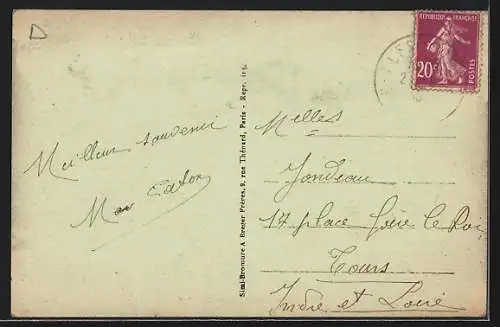 RÉPUBLIQUE FRANÇAISE
20c
POSTES
Meilleur souvenir
Simi-Bromure A Breger Frères, 9, rue Thénard, Paris - Repr. int.
Melles
Jondeau
17 place
le Roi
Tours
Indre et Loire